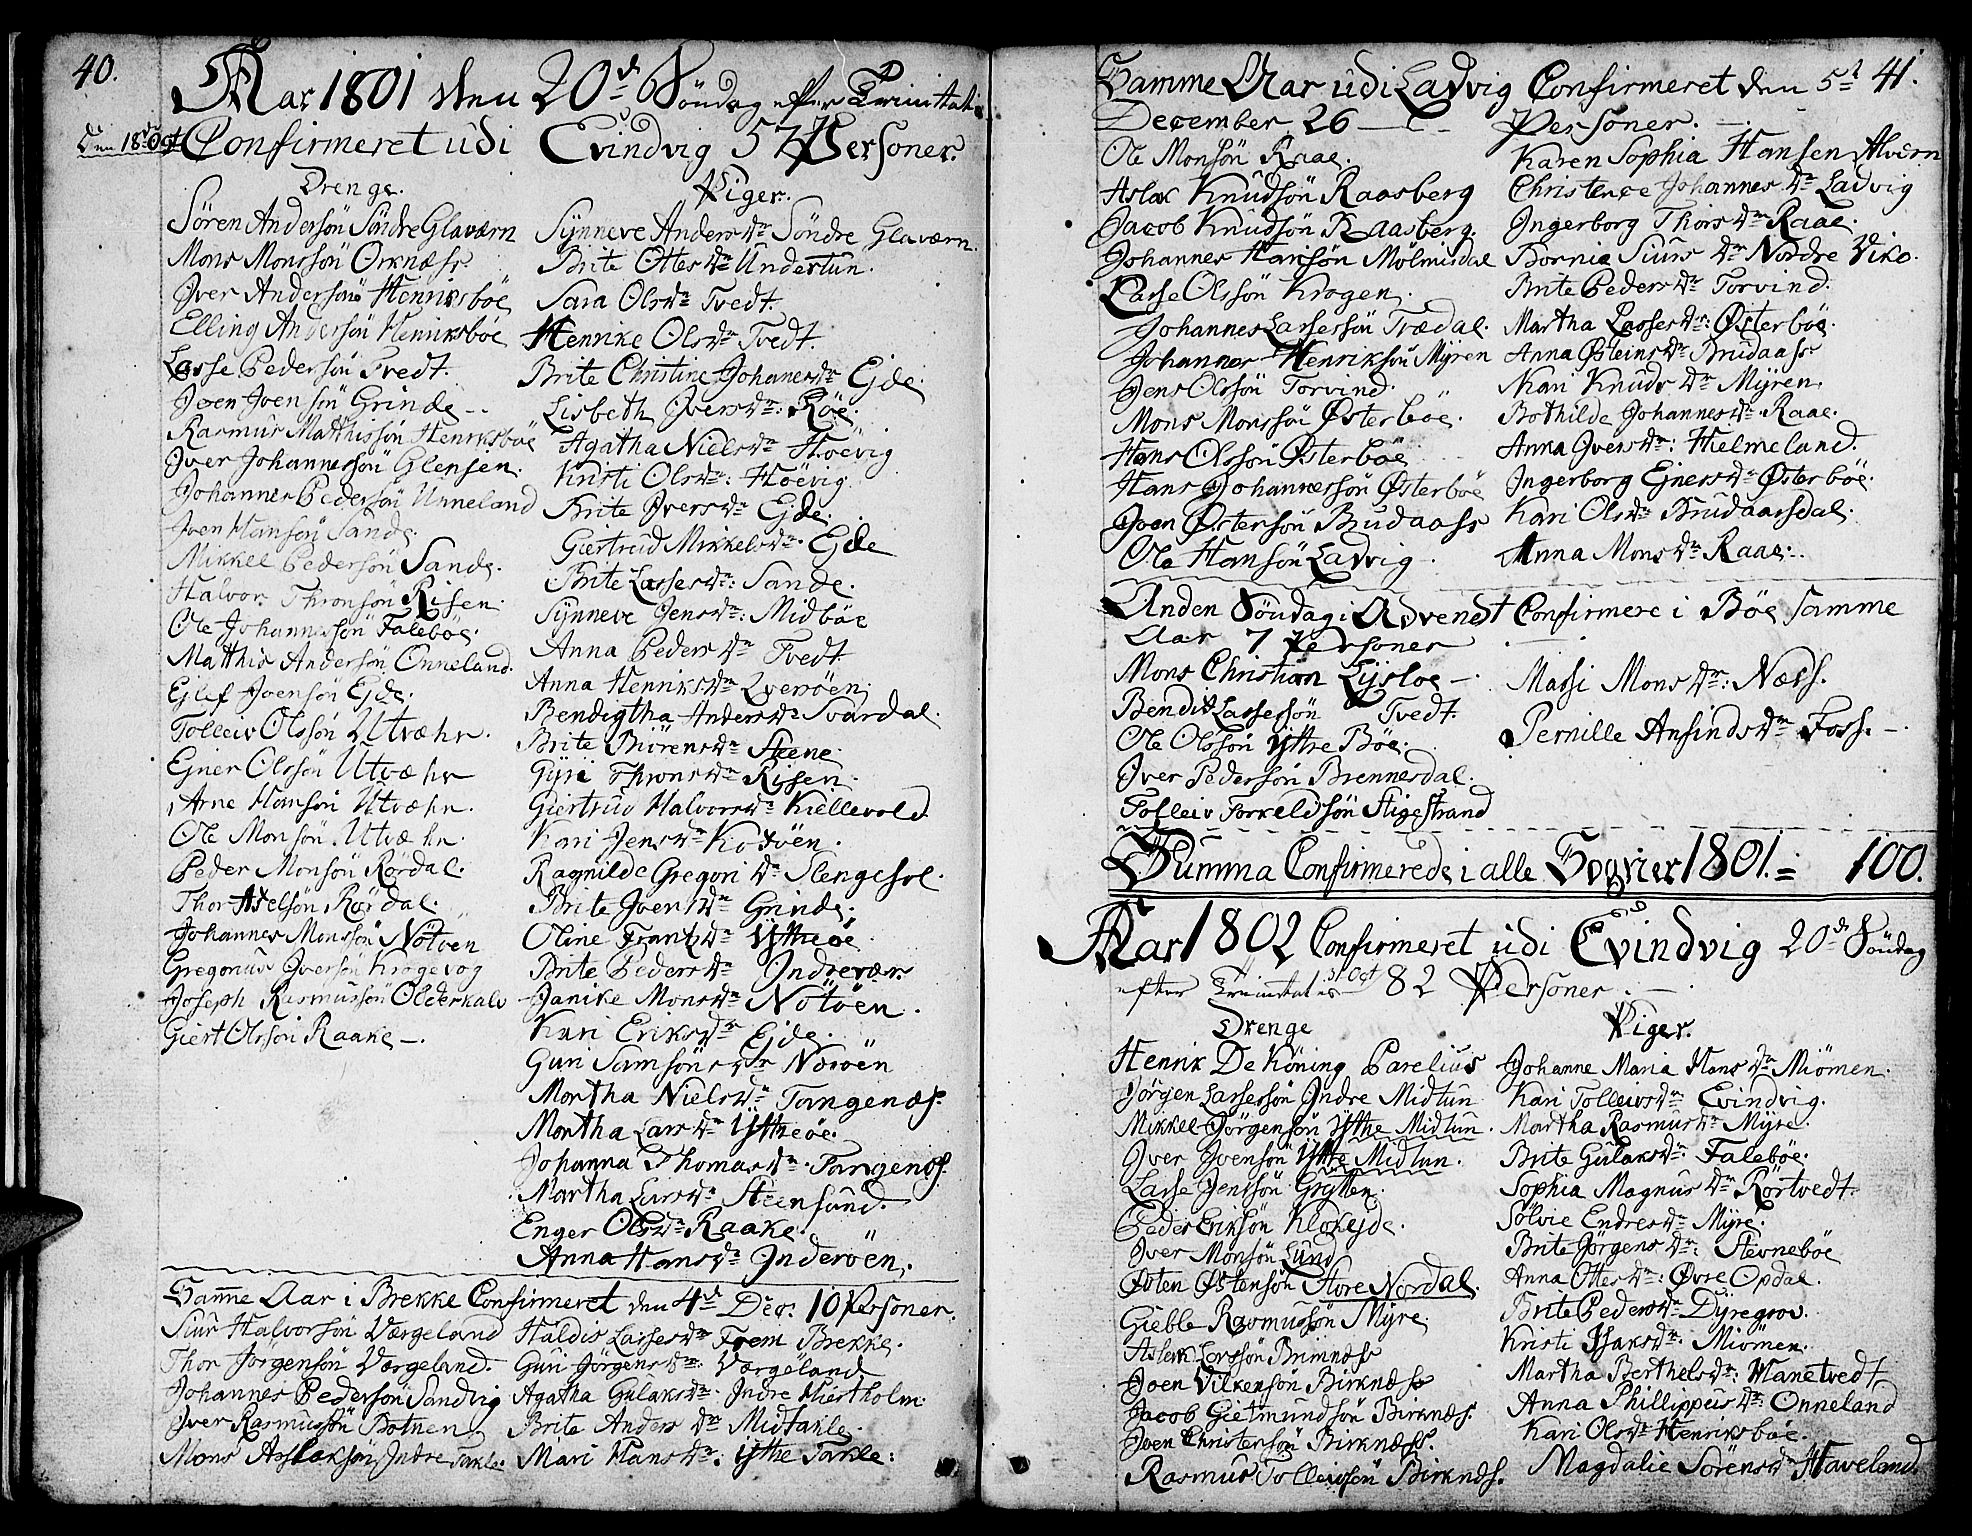 40.
Aar 1801 den 20de Söndag efter Trinitat:
Den 18de Oct
Confirmeret udi Evindvig 57 Personer.
Drenge.
Sören Andersön Söndre Glaværn
Mons Monssön Orknæss
Iver Andersön Henriksböe
Elling Andersön Henriksböe
Lasse Pedersön Tvedt.
Joen Joensön Grinde -.
Rasmus Mathissön Henriksböe
Iver Johannessön Glensen.
Johannes Pedersön Unneland
Joen Hansön Sande.
Mikkel Pedersön Sande.
Halvor Thronsön Risen
Ole Johannessön Faleböe.
Matthis Andersön Onneland.
Ejlef Joensön Ejde.
Tolleiv Olssön Utvæhr.
Ejner Olssön Utvæhr
Arne Hansön Utvæhr.
Ole Monsön Utvæhr.
Peder Monsön Rördal.
Thor Axelsön Rördal.
Johannes Monssön Nötöen
Gregorius Iversön Krogevog
Joseph Rasmussön Olderkalv
Giert Olssön Raake -.
Piger.
Synneve Anders Dr Söndre Glaværn.
Brite Ottes Dr Undertun.
Sara Ols Dr Tvedt.
Henrike Ols Dr Tvedt.
Brite Christine Johanes Dr Ejde.
Lisbeth Ivers Dr: Röe.
Agatha Niels Dr Höevig
Kristi Ols Dr: Höevig.
Brite Ivers Dr Ejde.
Giertrud Mikkels Dr. Ejde
Brite Lasses Dr: Sande.
Synneve Jens Dr: Midböe
Anna Peders Dr Tvedt.
Anna Henriks Dr Qveröen.
Bendigtha Anders Dr Svardal.
Brite Biörens Dr Steene.
Gyri Throns Dr Risen.
Giertrud Halvors Dr Kiellevold
Kari Jens Dr Kotöen.
Ragnilde Gregori Dr Slengesol.
Brite Joens Dr Grinde.
Oline Frantz Dr Yttreöe.
Brite Peders Dr Indrevær.
Janike Mons Dr Nötöen.
Kari Eriks Dr Ejde.
Guri Samsöns Dr Noröen
Martha Niels Dr Tangenæs.
Martha Lars Dr Yttreöe.
Johanna Thomas Dr. Tangenæs.
Martha Lars Dr Steensund.
Enger Ols Dr Raake.
Anna Hans Dr Inderöen.
Samme Aar i Brekke Confirmeret den 4de Dec: 10 Personer.
Siur Halvorsön Værgeland
Thor Jörgensön Værgeland.
Johannes Pedersön Sandvig
Iver Rasmussön Botnen
Mons Aslaksön Indre Takle.
Haldis Lasses Dr Frem Brekke.
Guri Jörgens Dr: Værgeland
Agatha Gulaks Dr. Indre Hiertholm.
Brite Anders Dr Midtakle.
Mari Hans Dr: Yttre Takle:
41.
Samme Aar udi Ladvig Confirmeret den 5te
December 26 Personer.
Ole Monsön Raae.
Aslak Knudsön Raasberg
Jacob Knudsön Raasberg.
Johannes Hansön Mölmisdal
Lasse Olssön Krogen.
Johannes Lassessön Trædal.
Johannes Henriksön Myren
Jens Olssön Torvind.
Mons Monssön Österböe.
Hans Olssön Österböe
Hans Johannessön Österböe
Joen Östensön Budaass
Ole Hansön Ladvig
Karen Sophia Hansen Alværn
Christence Johannes Dr Ladvig
Ingerborg Thors Dr Raae.
Bornie Siurs Dr Nordre Viko.
Brite Peders Dr Torvind.
Martha Lasses Dr: Österböe.
Anna Östeins Dr Budaass
Kari Knuds Dr Myren.
Bothilde Johannes Dr Raae.
Anna Ivers Dr: Hielmeland.
Ingerborg Ejners Dr Österböe.
Kari Ols Dr Budaasdal.
Anna Mons Dr Raae.
Anden Söndag i Advendt Confirmere i Böe samme
Aar 7 Personer
Mons Christian Lysloe -.
Bendix Lassessön Tvedt.
Ole Olssön Yttre Böe.
Iver Pedersön Brennesdal.
Tolleiv Torkeldsön Stigestrand
Massi Mons Dr: Næss.
Pernille Ansinds Dr Foss. -
Summa Confirmerede i alle Sogner 1801. = 100.
Aar 1802 Confirmeret udi Evindvig 20de Söndag
efter Trinitatis 31 Oct 82 Personer. -
Drenge
Henrik De Köning Parelius
Jörgen Lassesön Indre Midtun
Mikkel Jörgensön Yttre Midtun.
Iver Joensön Yttre Midtun.
Lasse Jenssön Grytten.
Peder Eriksön Klokejde.
Iver Monsön Lund
Östen Östensön Store Nordal.
Gieble Rasmussön Myre
Aslak Larssön Birknæss
Joen Vilkensön Birknæss
Jacob Gietmundsön Birknæs.
Joen Christensön Birknæss.
Rasmus Tolleivsön Birknæs.
Piger.
Johanne Maria Hans Dr Miömen.
Kari Tolleivs Dr Evindvig.
Martha Rasmus Dr Myre.
Brite Gulaks Dr: Faleböe.
Sophia Magnus Dr Rörtvedt.
Sölvie Endres Dr Myre.
Brite Jörgens Dr: Stevneböe
Anna Ottes Dr: Övre Opdal.
Brite Peders Dr Dyregrov.
Kristi Isaks Dr: Miömen.
Martha Berthels Dr: Manetvedt.
Anna Phillippus Dr Onneland
Kari Ols Dr Henriksböe.
Magdalie Sörens Dr Haveland.